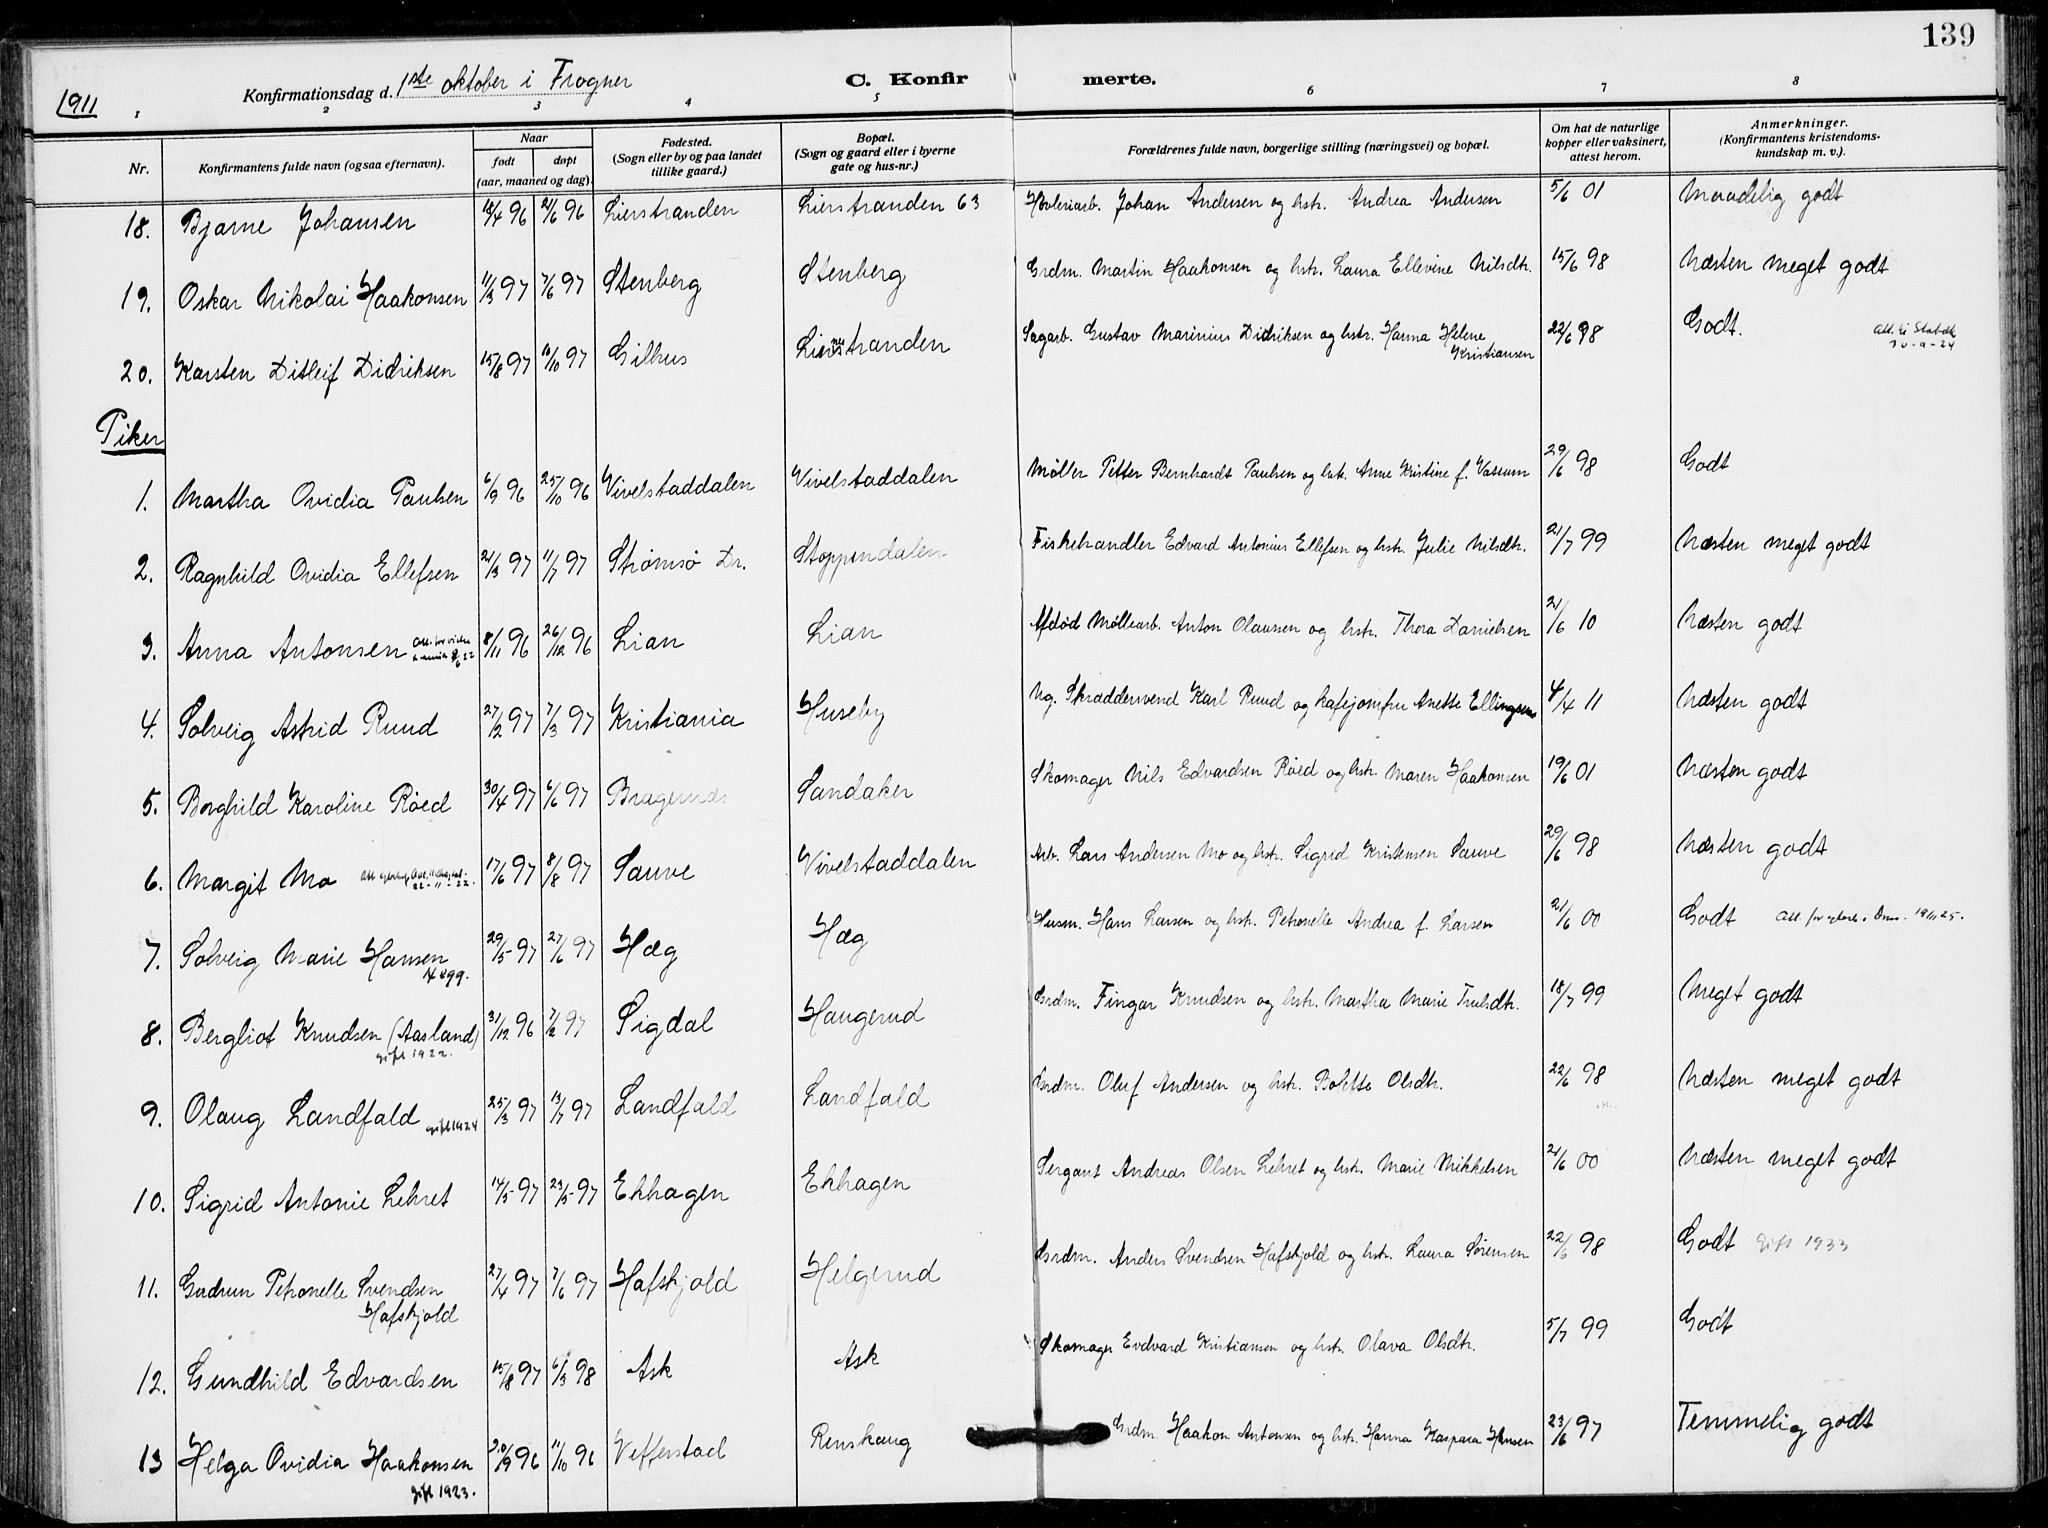 139
1911 Konfirmationsdag d. 1ste oktober i Frogner C. Konfir merte.
1 2 3 4 5 6 7 8
Nr. Konfirmantens fulde navn (ogsaa efternavn). Naar født døpt (aar, maaned og dag). Fødested. (Sogn eller by og paa landet tillike gaard.) Bopæl. (Sogn og gaard eller i byerne gate og hus-nr.) Forældrenes fulde navn, borgerlige stilling (næringsvei) og bopæl. Om hat de naturlige kopper eller vaksinert, attest herom. Anmerkninger. (Konfirmantens kristendoms-kundskap m. v.).
18. Bjarne Johansen 18/4 96 21/6 96 Lierstranden Lierstranden 63 Johan Andersen og hstr. Andrea Andersen 5/6 01 Maadelig godt
19. Oskar Nikolai Haakonsen 11/3 97 7/6 97 Stenberg Stenberg Grdm. Martin Haakonsen og hstr. Laura Ellevine Nilsdtr. 15/6 98 Næsten meget godt
20. Karsten Ditleif Didriksen 15/8 97 10/10 97 Gilhus Lierstranden Sagarb. Gustav Marinius Didriksen og hstr. Hanna Helene Kristiansen 22/6 98 Godt.
Piker
1. Martha Ovidia Paulsen 6/9 96 25/10 96 Vivelstaddalen Vivelstaddalen Møller Petter Bernhardt Paulsen og hstr. Anne Kristine f. 29/6 98 Godt
2. Ragnhild Ovidia Ellefsen 21/3 97 11/7 97 Strømsø Dr. Stoppendalen Fiskehandler Edvard Antonius Ellefsen og hstr. Julie Nilsdtr. 21/7 99 Næsten meget godt
3. Anna Antonsen 8/11 96 26/12 96 Lian Lian Afdød Møllearb. Anton Olaussen og hstr. Thora Danielsen 21/6 10 Næsten godt
4. Solveig Astrid Ruud 27/2 97 7/3 97 Kristiania Huseby Ug. Skræddersvend Karl Ruud og kafejomfru Anette Ellingsen 4/4 11 Næsten godt
5. Borghild Karoline Røed 30/4 97 6/6 97 Bragernes Sandaker Skomager Nils Edvardsen Røed og hstr. Maren Haakonsen 19/6 01 Næsten godt
6. Margit Mo 17/6 97 8/8 97 Sauve Vivelstaddalen Arb. Lars Andersen Mo og hstr. Sigrid Kristensen Sauve 29/6 98 Næsten godt
7. Solveig Marie Hansen 29/5 97 27/6 97 Hæg Hæg Husm. Hans Larsen og hstr. Petronelle Andrea f. Larsen 21/6 00 Godt
8. Bergliot Knudsen (Aasland) gift 1922. 31/12 96 7/2 97 Sigdal Haugerud Grdm. Fingar Knudsen og hstr. Martha Marie Trulsdtr. 18/7 99 Meget godt
9. Olaug Landfald gift 1924 25/3 97 13/7 97 Landfald Landfald Grdm. Oluf Andersen og hstr. Bolette Olsdtr. 22/6 98 Næsten meget godt
10. Sigrid Antonie Lehret 14/5 97 23/5 97 Ekhagen Ekhagen Sergant Andreas Olsen Lehret og hstr. Marie Mikkelsen 21/6 00 Næsten meget godt
11. Gudrun Petronelle Svendsen Hafskjold 27/4 97 7/6 97 Hafskjold Helgerud Grdm. Anders Svendsen Hafskjold og hstr. Laura Sørensen 22/6 98 Godt Gift 1933
12. Gundhild Edvardsen 15/8 97 6/3 98 Ask Ask Skomager Evdvard Kristiansen og hstr. Olava Olsdtr. 5/7 99 Godt
13 Helga Ovidia Haakonsen gift 1923. 20/9 96 11/10 96 Vefferstad Renskaug Grdm. Haakon Antonsen og hstr. Hanna Kaspara Hansen 23/6 97 Temmelig godt